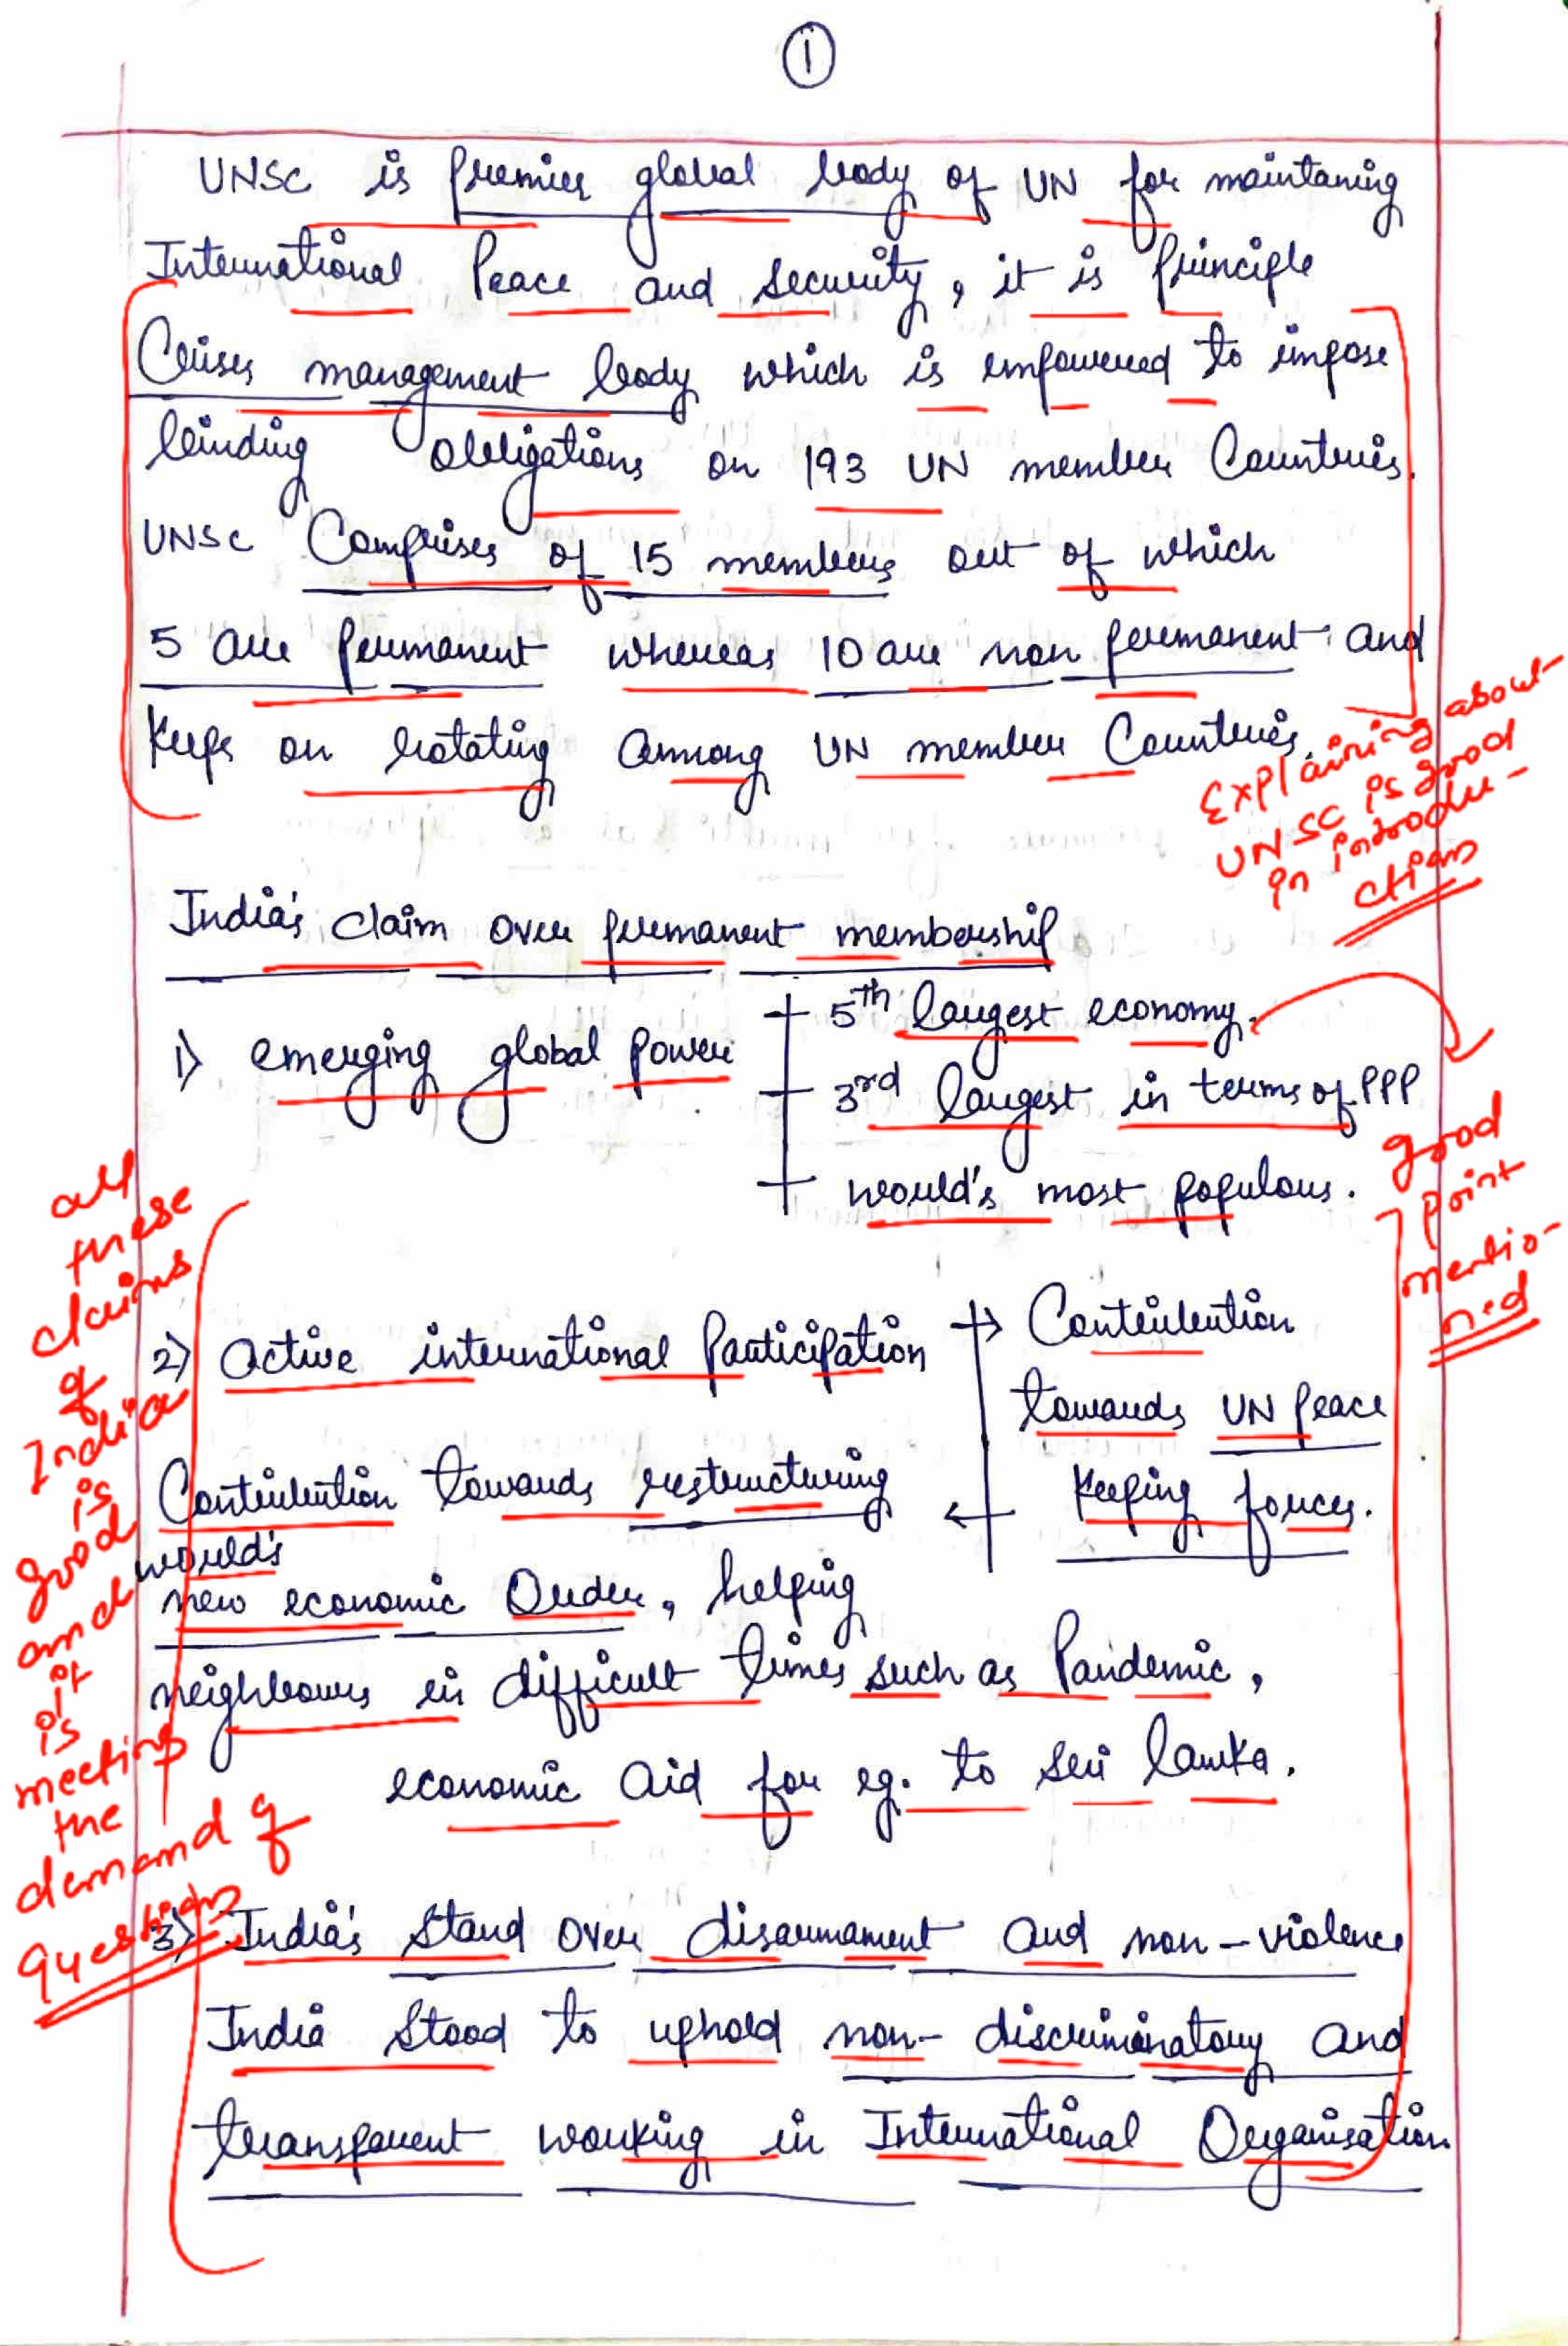 1
UNSC is premier global body of UN for maintaning
International Peace and security, it is principle
Crises management body which is empowered to impose
binding obligations on 193 UN member Countries.
UNSC Comprises of 15 members out of which
5 are permanent whereas 10 are non permanent and
keeps on rotating among UN member Countries.
Explaining about
UNSC is good
in introdu-
ction
India's claim over permanent membership
1) emerging global power
5th largest economy.
3rd largest in terms of PPP
world's most populous.
good
point
mentio-
ned
all
these
claims
of
India
is
good
and
it
is
meeting
the
demand of
question
2) Active international Participation
Contribution
towards UN Peace
Keeping forces.
Contribution towards restructuring
world's
new economic Order, helping
neighbours in difficult times such as Pandemic,
economic aid for eg. to Sri lanka.
3) India's stand over disarmament and non-violence
India stood to uphold non-discriminatory and
transparent working in International Organisation